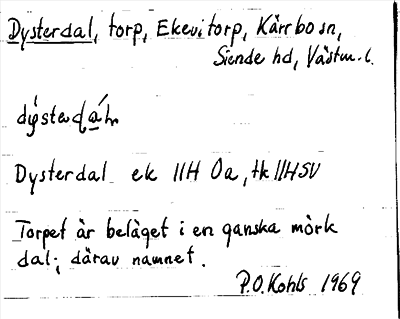 Dysterdal, torp, Ekevi torp, Kärrbo sn,
Siende hd, Västm. l.
Dysterdal ek 11H 0a, tk 11HSV
Torpet är beläget i en ganska mörk
dal; därav namnet.
P.O. Kohls 1969